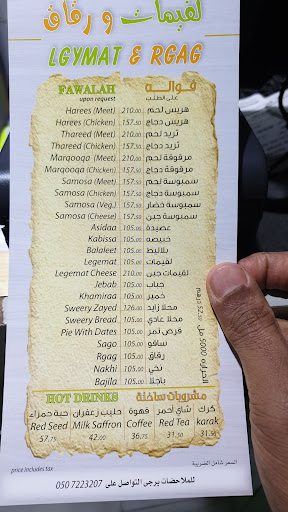 لقيمات و رقاق
LGYMAT & RGAG
FAWALAH فـوالـــة
upon request على الطلب
Harees (Meet) 210.00 هريس لحم
Harees (Chicken) 157.50 هريس دجاج
Thareed (Meet) 210.00 ثريد لحم
Thareed (Chicken) 157.50 ثريد دجاج
Marqooqa (Meet) 210.00 مرقوقة لحم
Marqooqa (Chicken) 157.50 مرقوقة دجاج
Samosa (Meet) 157.50 سمبوسة لحم
Samosa (Chicken) 157.50 سمبوسة دجاج
Samosa (Veg.) 157.50 سمبوسة خضار
Samosa (Cheese) 157.50 سمبوسة جبن
Asidaa 105.00 عصيدة
Kabissa 105.00 خبيصه
Balaleet 105.00 بلاليط
Legemat 105.00 لقيمات
Legemat Cheese 210.00 لقيمات جبن
Jebab 105.00 جباب
Khamiraa 105.00 خمير
Sweery Zayed 126.00 محلا زايد
Sweery Bread 105.00 محلا عادي
Pie With Dates 105.00 قرص تمر
Sago 105.00 ساقو
Rgag 105.00 رقاق
Nakhi 105.00 نخي
Bajila 105.00 باجلا
HOT DRINKS مشروبات ساخنة
حبة حمراء حليب زعفران قهوة شاي أحمر كرك
Red Seed Milk Saffron Coffee Red Tea karak
57.75 42.00 36.75 31.50 31.50
السعر شامل الضريبة
price includes tax
للملاحضات يرجى التواصل على 050 7223207